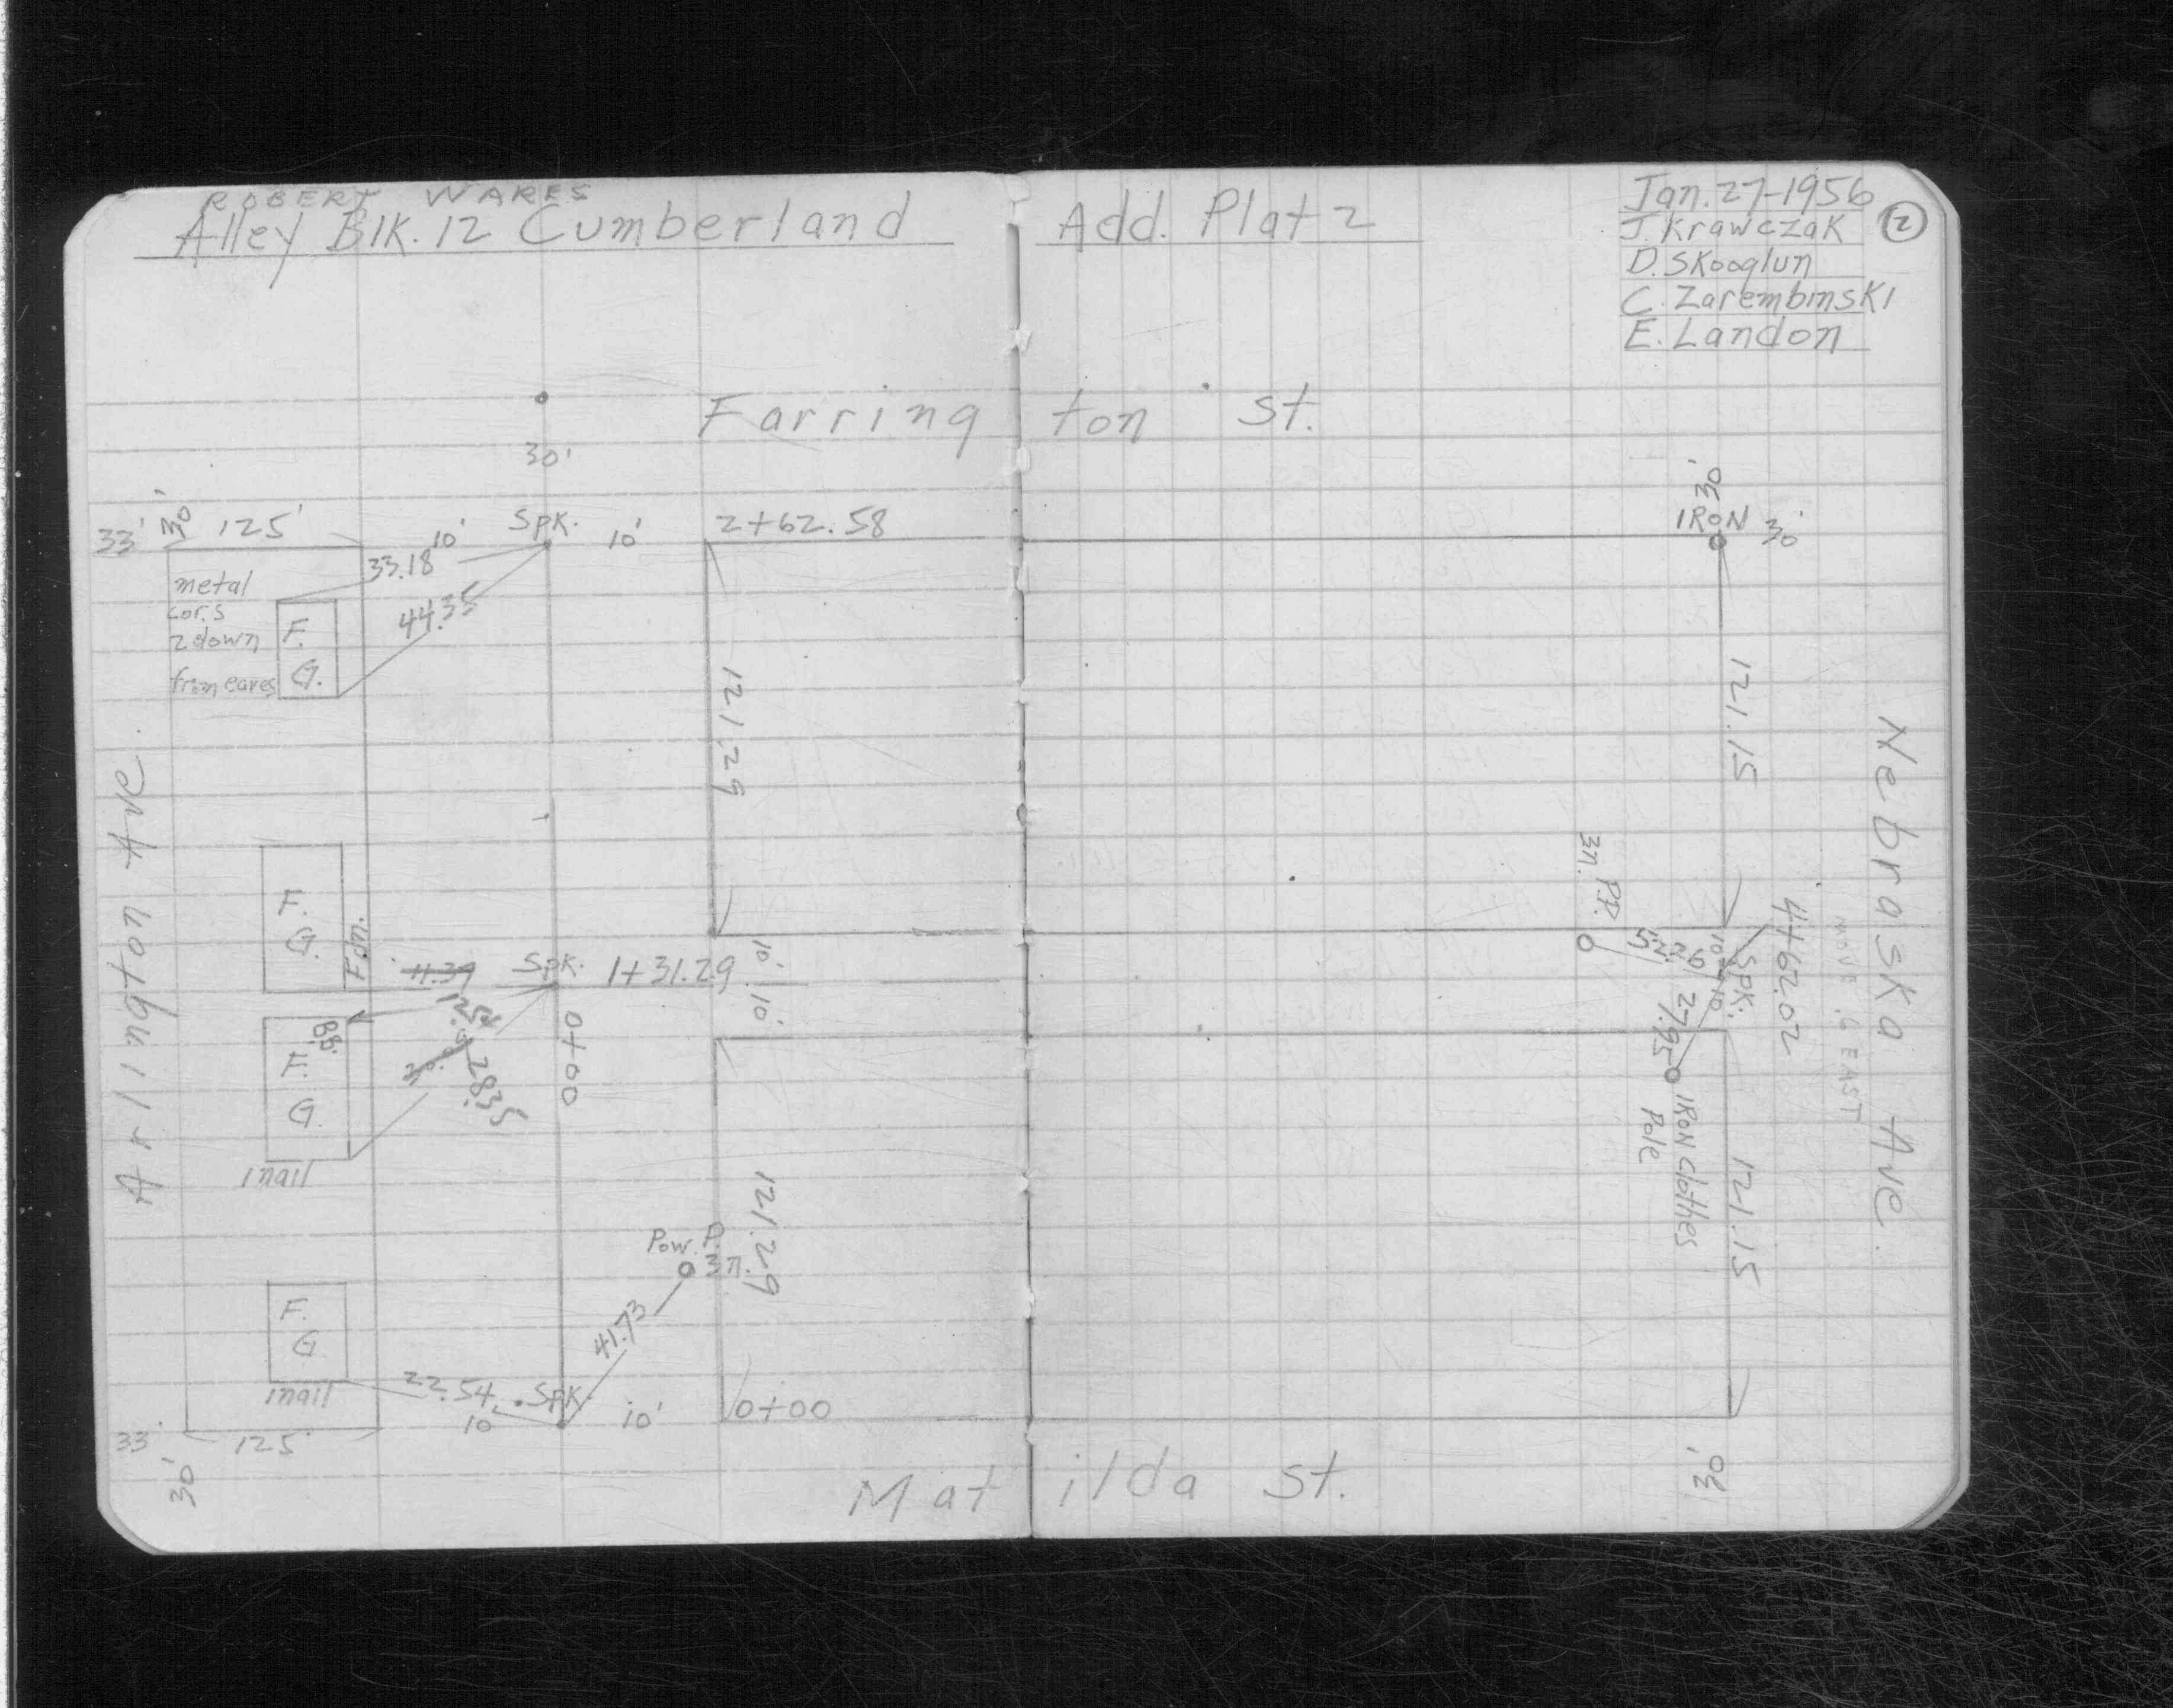 ROBERT WARES
Alley Blk. 12 Cumberland Add. Plat 2
Jan. 27-1956
2
J. Krawczak
D. Skooglun
C. Zarembinski
E. Landon
Farrington St.
30'
30'
IRON 30'
33' 30' 125' 10' Spk. 10' 2+62.58
33.18
44.35
metal
cor.s
2 down
from eaves
F.
G.
121.29
121.15
Arlington Ave.
Nebraska Ave.
F.
G.
Fdn.
11.39
Spk. 1+31.29
10'
10'
0+00
12.54
28.35
BB.
F.
G.
1 nail
3 n. P.P.
52.26
10'
10'
Spk.
4+62.02
move .6 EAST
27.95
IRON Clothes
Pole
121.29
121.15
Pow. P.
3 n.
41.73
F.
G.
1 nail
22.54
Spk.
10' 10' 0+00
33' 125'
30'
30'
Matilda St.